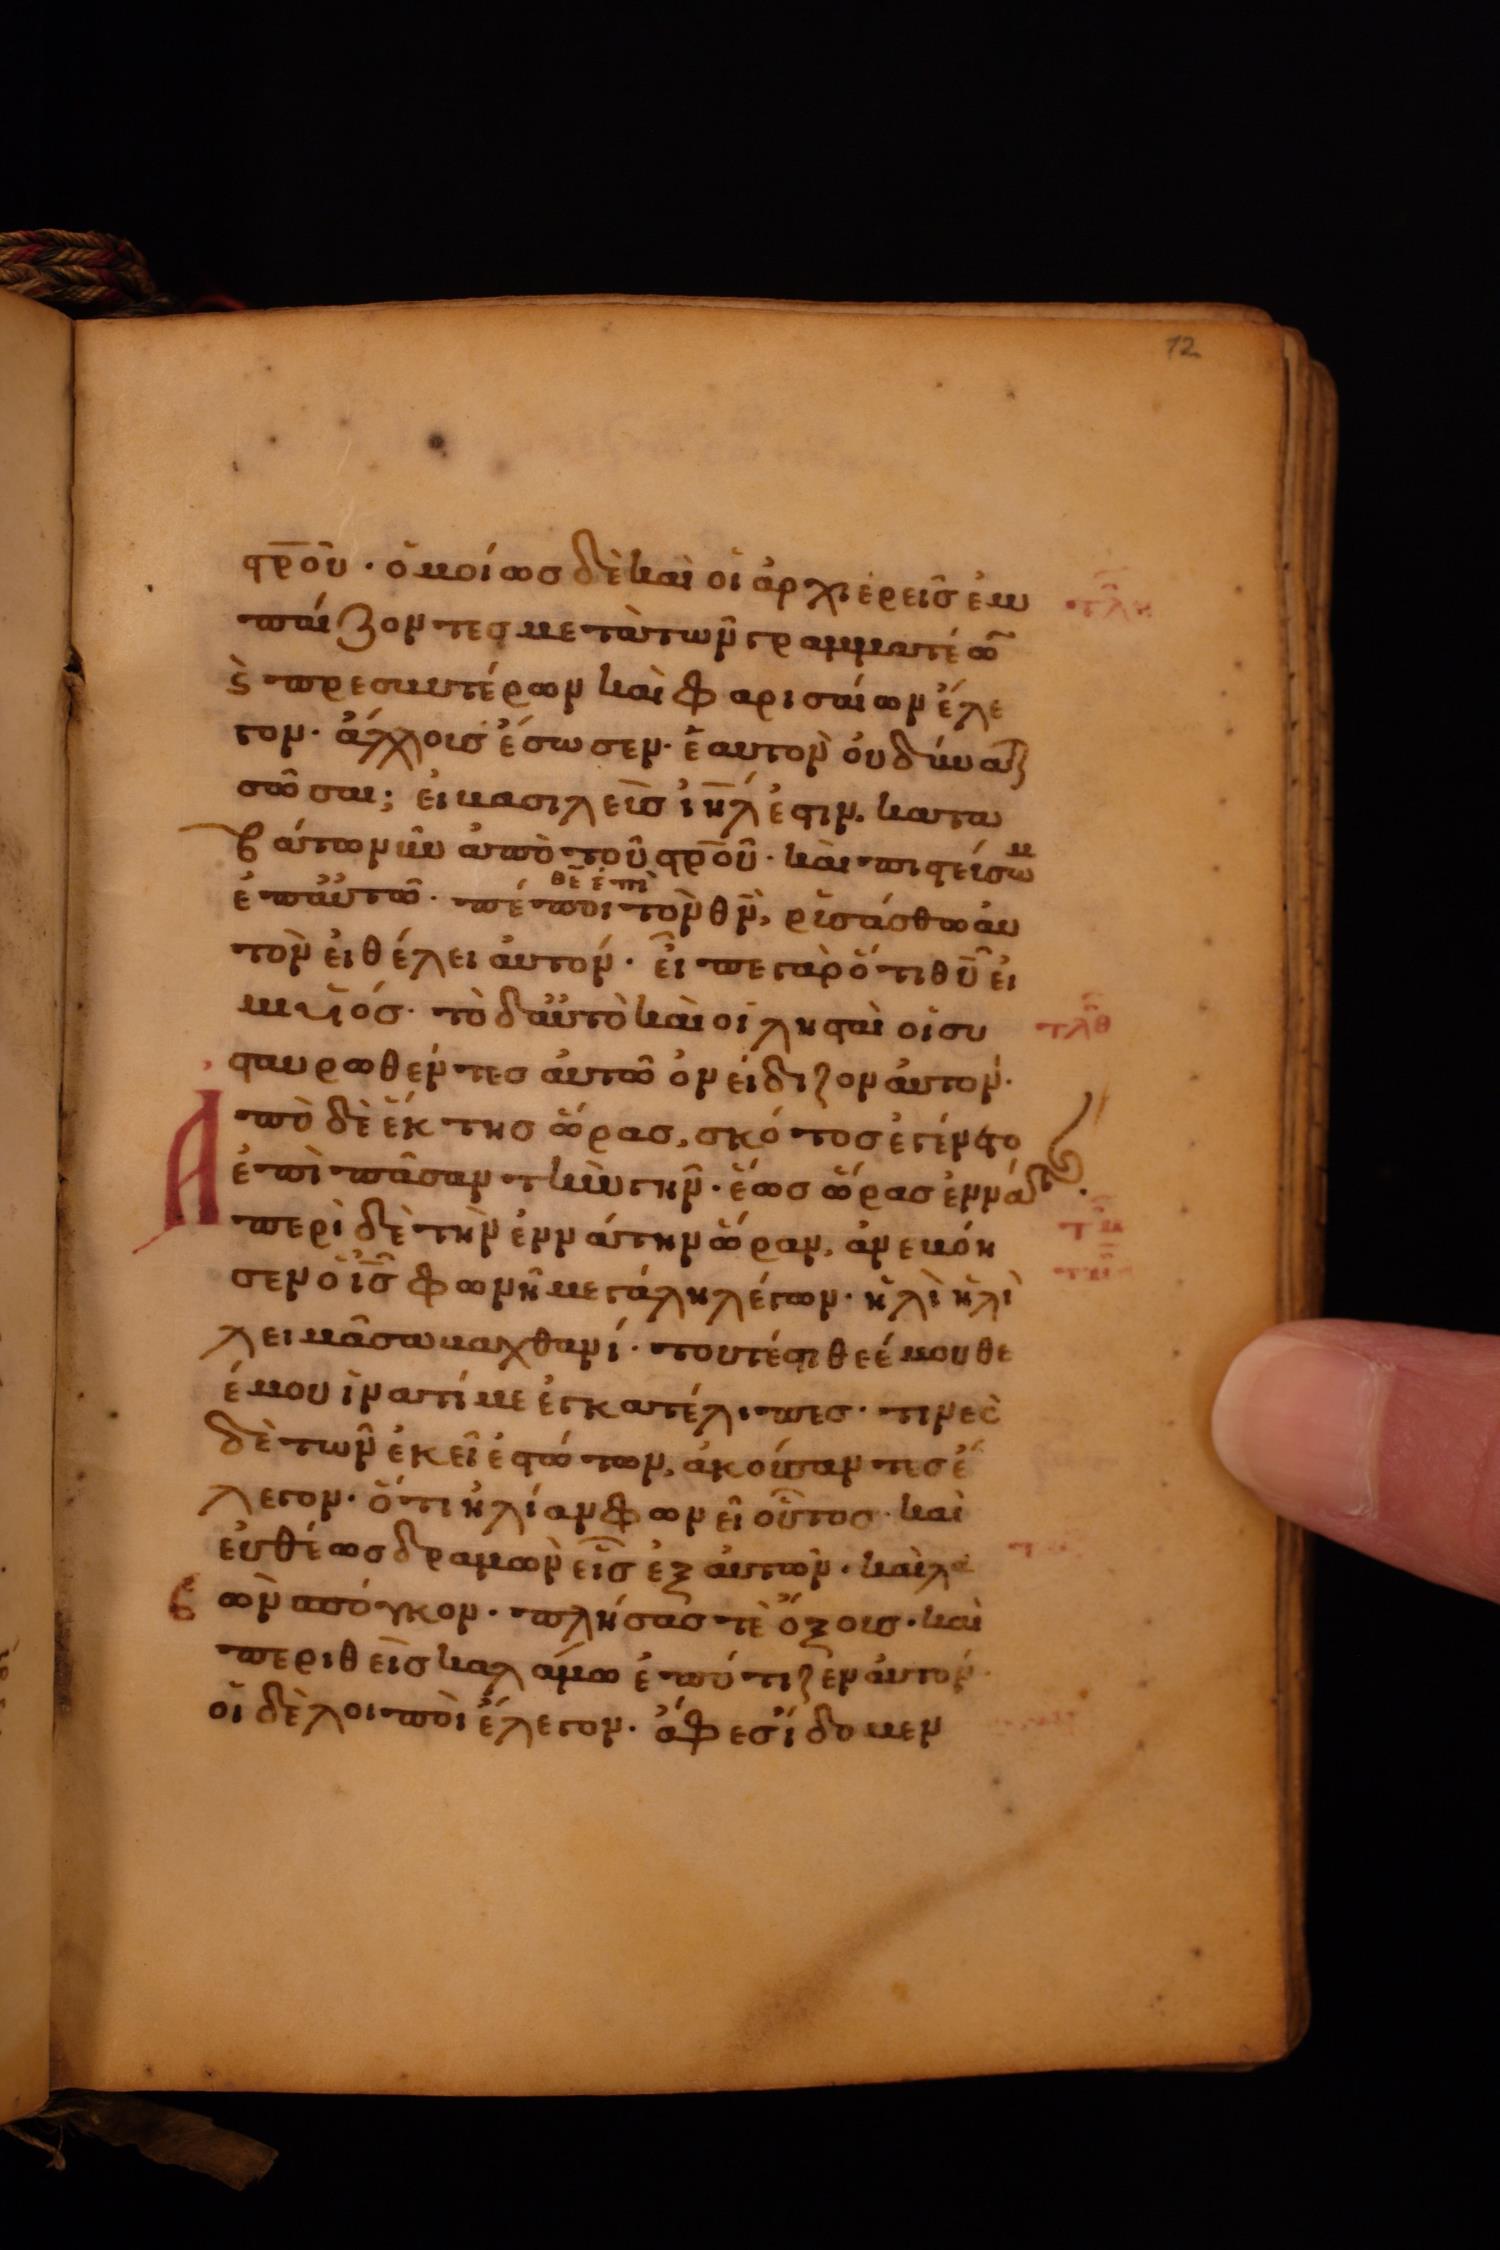 12
σ̅ρ̅ο̅ῦ · ὁμοίωσ δὲ καὶ οἱ ἀρχιερεῖσ ἐμ
παίζοντεσ μετὰ τῶν γραμματέω̅
ϛ̀ πρεσβυτέρων καὶ φαρισαίων ἔλε
γον · ἄλλουσ ἔσωσεν · ἑαυτὸν οὐ δύναται
σῶσαι; εἰ βασιλεῖσ ἰη̅λ ἐστιν. κατα
βάτω νῦν ἀπὸ τοῦ στ̅ρ̅ο̅ῦ · καὶ πιστεύσωμ
ἐπ αὐτῶ · πέποιθεν ἐπὶ τὸν θ̅ν̅, ῥυσάσθω αὐ
τὸν εἰ θέλει αὐτόν · εἶπε γὰρ ὅτι θ̅υ̅ εἰ
μι υἱόσ · τὸ δ αὐτὸ καὶ οἱ λησταὶ οἱ συ
σταυρωθέντεσ αὐτῶ ὀνείδιζον αὐτόν ·
Α
πὸ δὲ ἕκτησ ὥρασ, σκότοσ ἐγένετο
ἐπὶ πᾶσαν τὴν γῆν · ἕωσ ὥρασ ἐννάτησ ·
περὶ δὲ τὴν ἐννάτην ὥραν, ἀνεβόη
σεν ὁ ι̅σ̅ φωνῆ μεγάλη λέγων · ἠλὶ ἠλὶ
λειμᾶ σαβαχθανί · τουτέστι θεέ μου θε
έ μου ἱνατί με ἐγκατέλιπεσ · τινὲσ
δὲ τῶν ἐκεῖ ἑστώτων, ἀκούσαντεσ ἔ
λεγον · ὅτι ἠλίαν φωνεῖ οὗτοσ · καὶ
εὐθέωσ δραμὼν εἷσ ἐξ αὐτῶν · καὶ λα
βὼν σπόγγον · πλήσασ τὲ ὄξουσ · καὶ
περιθεὶσ καλάμω ἐπότιζεν αὐτόν ·
οἱ δὲ λοιποὶ ἔλεγον · ἄφεσ ἴδωμεν